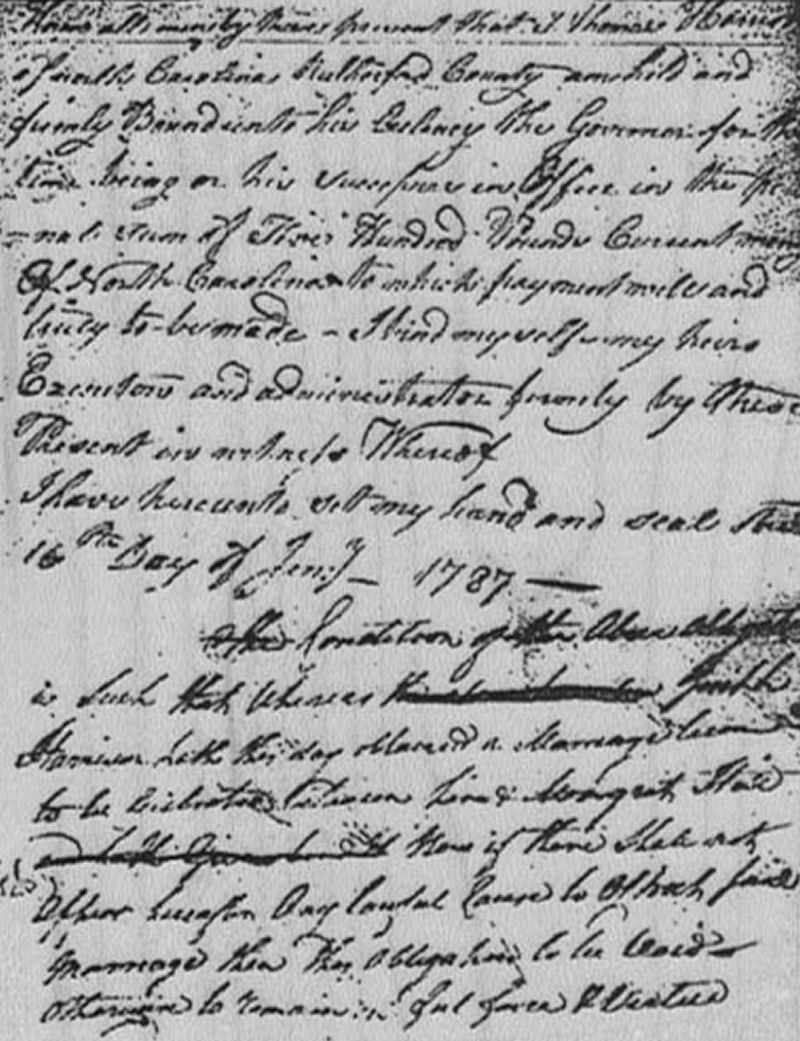 Know all men by these present that I Thomas Harison
of north Carolina Rutherford County am held and
firmly Bound unto his Exelency the Governor for the
time being or his successors in Office in the pe
-nal sum of Five Hundred Pounds Current mony
Of North Carolina to which payment well and
truly to be made - I bind myself my heirs
Executors and administrators firmly by these
Present in witness Whereof
I have hereunto set my hand and seal this
16th Day of Jenry - 1787 —
The Condition of the Above obligat
is Such that Whereas
Harrison hath this day obtained a Marriage licen
to be Celebrated between him &
Now if there Shale not
Appear hereafter Any lawful Cause to Obstruct said
Marriage then this Obligation to be Void
otherwise to remain in ful force & Vertue